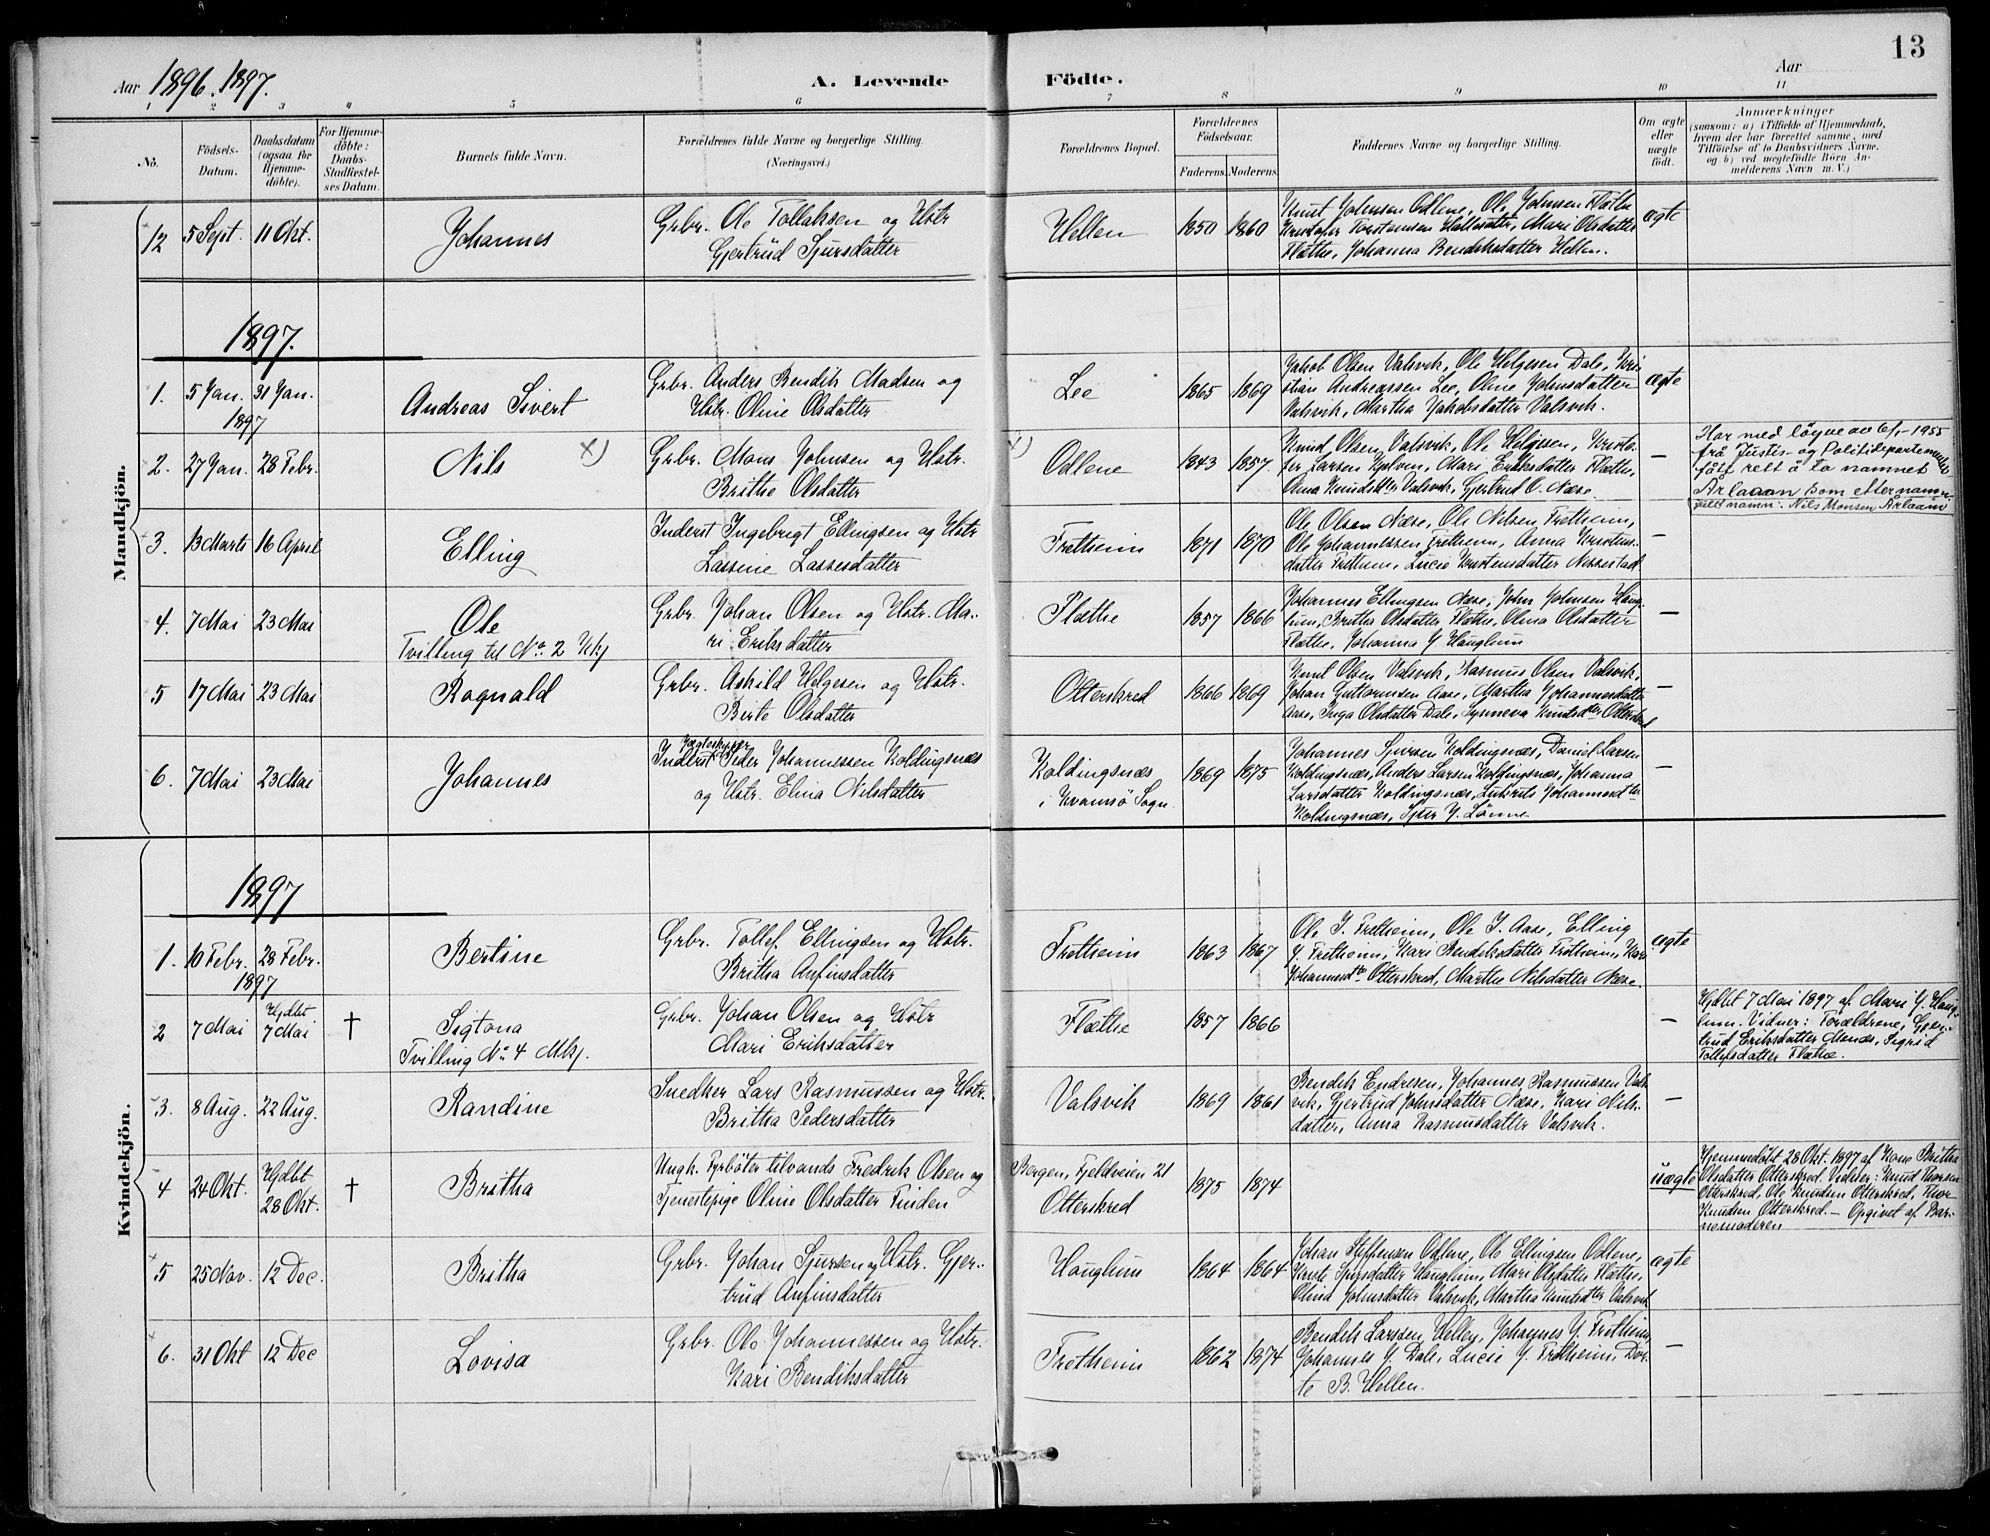 13
Aar 1896. 1897.
A. Levende Födte.
Aar
1 2 3 4 5 6 7 8 9 10 11
No.
Födsels-Datum.
Daabsdatum (ogsaa for Hjemmedöbte).
For Hjemmedöbte: Daabs-Stadfæstelses Datum.
Barnets fulde Navn.
Forældrenes fulde Navne og borgerlige Stilling. (Næringsvei.)
Forældrenes Bopæl.
Forældrenes Födselsaar.
Faderens. Moderens.
Faddernes Navne og borgerlige Stilling.
Om ægte eller uægte födt.
Anmærkninger (saasom: a) i Tilfælde af Hjemmedaab, hvem der har forrettet samme, med Tilföielse af to Daabsvidners Navne, og b) ved uægtefödte Börn Anmelderens Navn m. V.)
Mandkjön.
12 5 Sept. 11 Okt. Johannes
Grbr. Ole Tollaksen og Hstr
Gjertrüd Sjursdatter
Hellen 1850 1860
Knut Johnsen Odlene, Ole Johnsen Flæthe
Kristofer Torstensen Hallsæter, Mari Olsdatter
Flæthe, Johanna Bendiksdatter Hellen.
ægte
1897.
1. 5 Jan. 1897 31 Jan. Andreas Sivert
Grbr. Anders Bendik Madsen og
Hstr. Oline Olsdatter
Lee 1865 1869
Jakob Olsen Valsvik, Ole Helgesen Dale, Kri-
stian Andreassen Lee, Oline Johnsdatter
Valsvik, Martha Jakobsdatter Valsvik.
ægte
2. 27 Jan. 28 Febr. Nils x)
Grbr. Mons Johnsen og Hstr.
Brithe Olsdatter
x) Odlene 1843 1857
Knud Olsen Valsvik, Ole Helgesen, Kristo-
fer Larsen Hellen, Mari Eriksdatter Flæthe,
Anna Knudsdtr Valsvik, Gjertrud O. Næse.
—
Har med løyve av 6/1 - 1955
frå Justis- og Politidepartementet
fått rett å ta namnet
Årlaaam som etternamn.
Fullt namn: Nils Monsen Årlaam
3. 13 Marts 16 April Elling
Inderst Ingebrigt Ellingsen og Hstr
Lassine Lassesdatter
Fretheim 1871 1870
Ole Olsen Næse, Ole Nilsen Fretheim,
Ole Johannessen Fretheim, Anna Kristens-
datter Fretheim, Lucie Kristensdatter Nessestad
—
4. 7 Mai 23 Mai Ole
Tvilling til No. 2 Kkj
Grbr. Johan Olsen og Hstr. Ma-
ri Eriksdatter
Flæthe 1857 1866
Johannes Ellingsen Næse, John Johnsen Haug-
lum, Brithe Olsdatter Flæthe, Olina Olsdatter
Flæthe, Johanna J Hauglum
—
5 17 Mai 23 Mai Ragnald
Grbr. Askild Helgesen og Hstr.
Berte Olsdatter
Otterskred 1866 1869
Knut Olsen Valsvik, Rasmus Olsen Valsvik,
Johan Guttormsen Aase, Martha Johannesdatter
Aase, Inga Olsdatter Dale, Synneva Knutsdtr Otterskred
—
6. 7 Mai 23 Mai Johannes
Jægteskipper
Inderst Peder Johannessen Koldingsnæs
og Hstr. Elina Nilsdatter
Koldingsnæs
i Kvamsö Sogn. 1869 1875
Johannes Sjursen Koldingsnæs, Daniel Larsen
Koldingsnæs, Anders Larsen Koldingsnæs, Johanna
Larsdatter Koldingsnæs, Johannesdtr
Koldingsnæs, Sjur J. Lönne.
—
Kvindekjön.
1897
1. 10 Febr. 1897 28 Febr. Bertine
Grbr. Tollef. Ellingsen og Hstr.
Britha Anfinsdatter
Fretheim 1863 1867
Ole J. Fretheim, Ole J. Aase, Elling
J. Fretheim, Kari Bendiksdatter Fretheim, Kari
Johannesdtr Otterskred, Marthe Nilsdatter Næse.
ægte
2 7 Mai Hjdbt 7 Mai † Sigtona
Tvilling No. 4 Mkj.
Grbr. Johan Olsen og Hstr
Mari Eriksdatter
Flæthe 1857 1866
—
Hjdbt 7 Mai 1897 af Mari J. Haug-
lum. Vidner: Forældrene, Gjer-
trud Eriksdatter Menæs, Sigrid
Tollefsdatter Flæthe.
3. 8 Aug. 22 Aug. Randine
Snedker Lars Rasmussen og Hstr.
Britha Pedersdatter
Valsvik 1869 1861
Bendik Endresen, Johannes Rasmussen Vals-
vik, Gjertrud Johnsdatter Næse, Kari Nils-
datter, Anna Rasmusdatter Valsvik.
—
4 24 Okt. Hjdbt 28 Okt. † Britha
Ungk. Fyrböter tilvands Fredrik Olsen og
Tjenestepige Oline Olsdatter Finden
Bergen, Fjeldveien 21
Otterskred 1875 1874
üægte
Hjemmedöbt 28 Okt. 1897 af Kone Britha
Olsdatter Otterskred. Vidner: Knud Thorsen
Otterskred, Ole Knudsen Otterskred, Thor
Knudsen Otterskred. — Opgivet af Bar-
nemoderen
5 25 Nov. 12 Dec. Britha
Grbr. Johan Sjursen og Hstr. Gjer-
trüd Anfinsdatter
Hauglum 1864 1864
Johan Steffensen Odlene, Ole Ellingsen Odlene,
Kriste Sjursdatter Hauglum, Mari Olsdatter Flæthe,
Olina Johnsdatter Valsvik, Martha Knutsdtr Valsvik
ægte
6. 31 Okt 12 Dec Lovisa
Grbr. Ole Johannessen og Hstr.
Kari Bendiksdatter
Fretheim 1862 1874
Bendik Larssen Hellen, Johannes J. Fretheim,
Johannes J. Dale, Lucie J. Fretheim, Dor-
te B. Hellen.
—